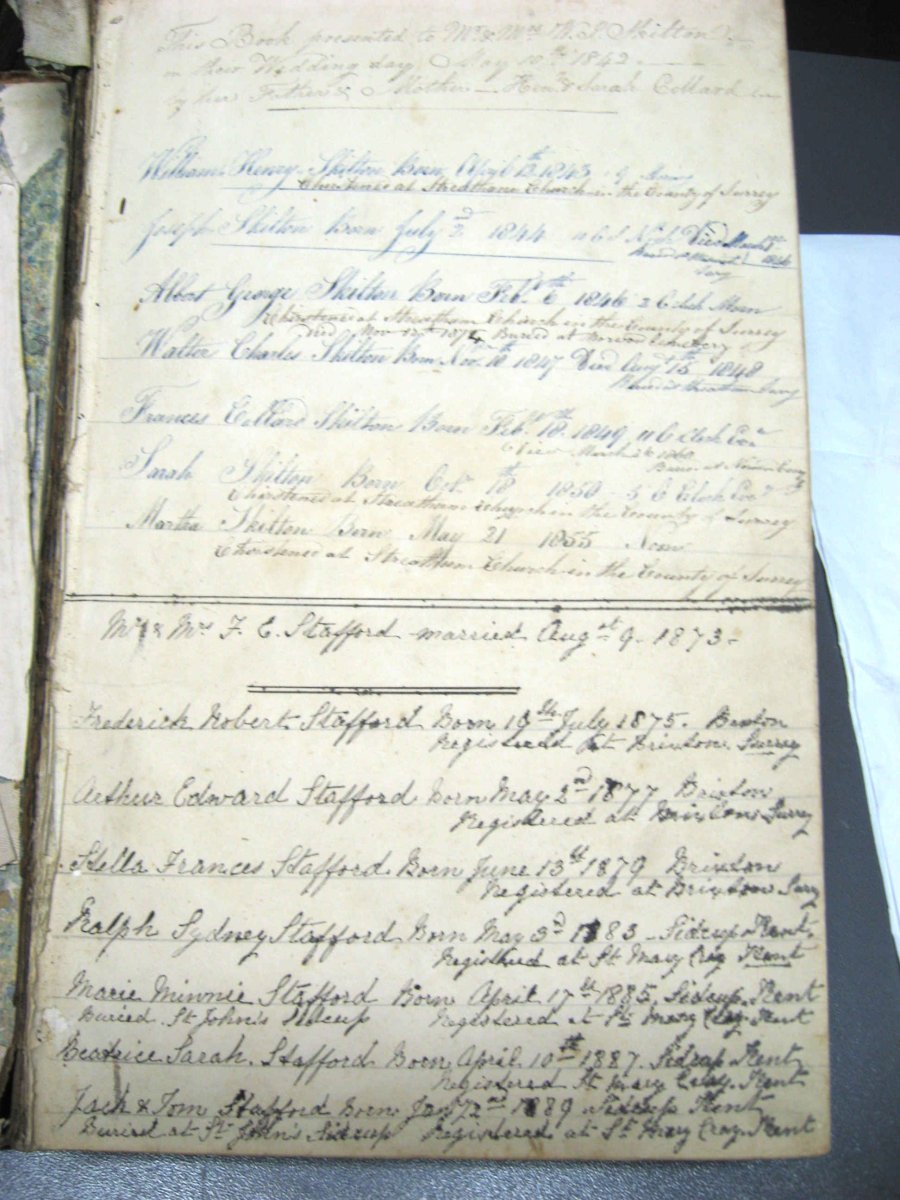 This Book presented to Mr & Mrs W. S. Skilton
on their Wedding day May 10th 1842
by her Father & Mother Sarah Collard
William Henry Skilton Born 1843
Christened at Streatham Church in the County of Surrey
Joseph Skilton Born July 2nd 1844 Died
Albert George Skilton Born Feby 6th 1846 2 Clock Morn
Christened at Streatham Church in the County of Surrey
Died Nov Buried at Norwood Cemetery
Walter Charles Skilton Born Nov. 18th 1847 Died Augt 15th 1848
Frances Collard Skilton Born Feby 18th 1849 Clock
Sarah Skilton Born Oct 18th 1850 5 Clock
Christened at Streatham Church in the County of Surrey
Martha Skilton Born May 21 1855 Noon
Christened at Streatham Church in the County of Surrey
Mr & Mrs F. E. Stafford married Augst 9 - 1873 -
Frederick Robert Stafford Born July 1875.
Registered at Brixton. Surrey
Arthur Edward Stafford Born May 2nd 1877 Brixton
Registered at Brixton Surrey
Stella Frances Stafford Born June 13th 1879 Brixton
Registered at Brixton
Ralph Sydney Stafford Born May 3d 1883 - Sidcup Kent,
Registered at St Mary Cray Kent
Marie Minnie Stafford Born April 17th 1885, Sidcup. Kent
Buried St John's Sidcup Registered at St Mary Cray. Kent
Beatrice Sarah. Stafford Born April. 10th 1887. Sidcup Kent,
Registered St Mary Cray. Kent
Jack & Tom Stafford Born 1889 - Sidcup Kent
Buried at St John's Sidcup Registered at St Mary Cray. Kent